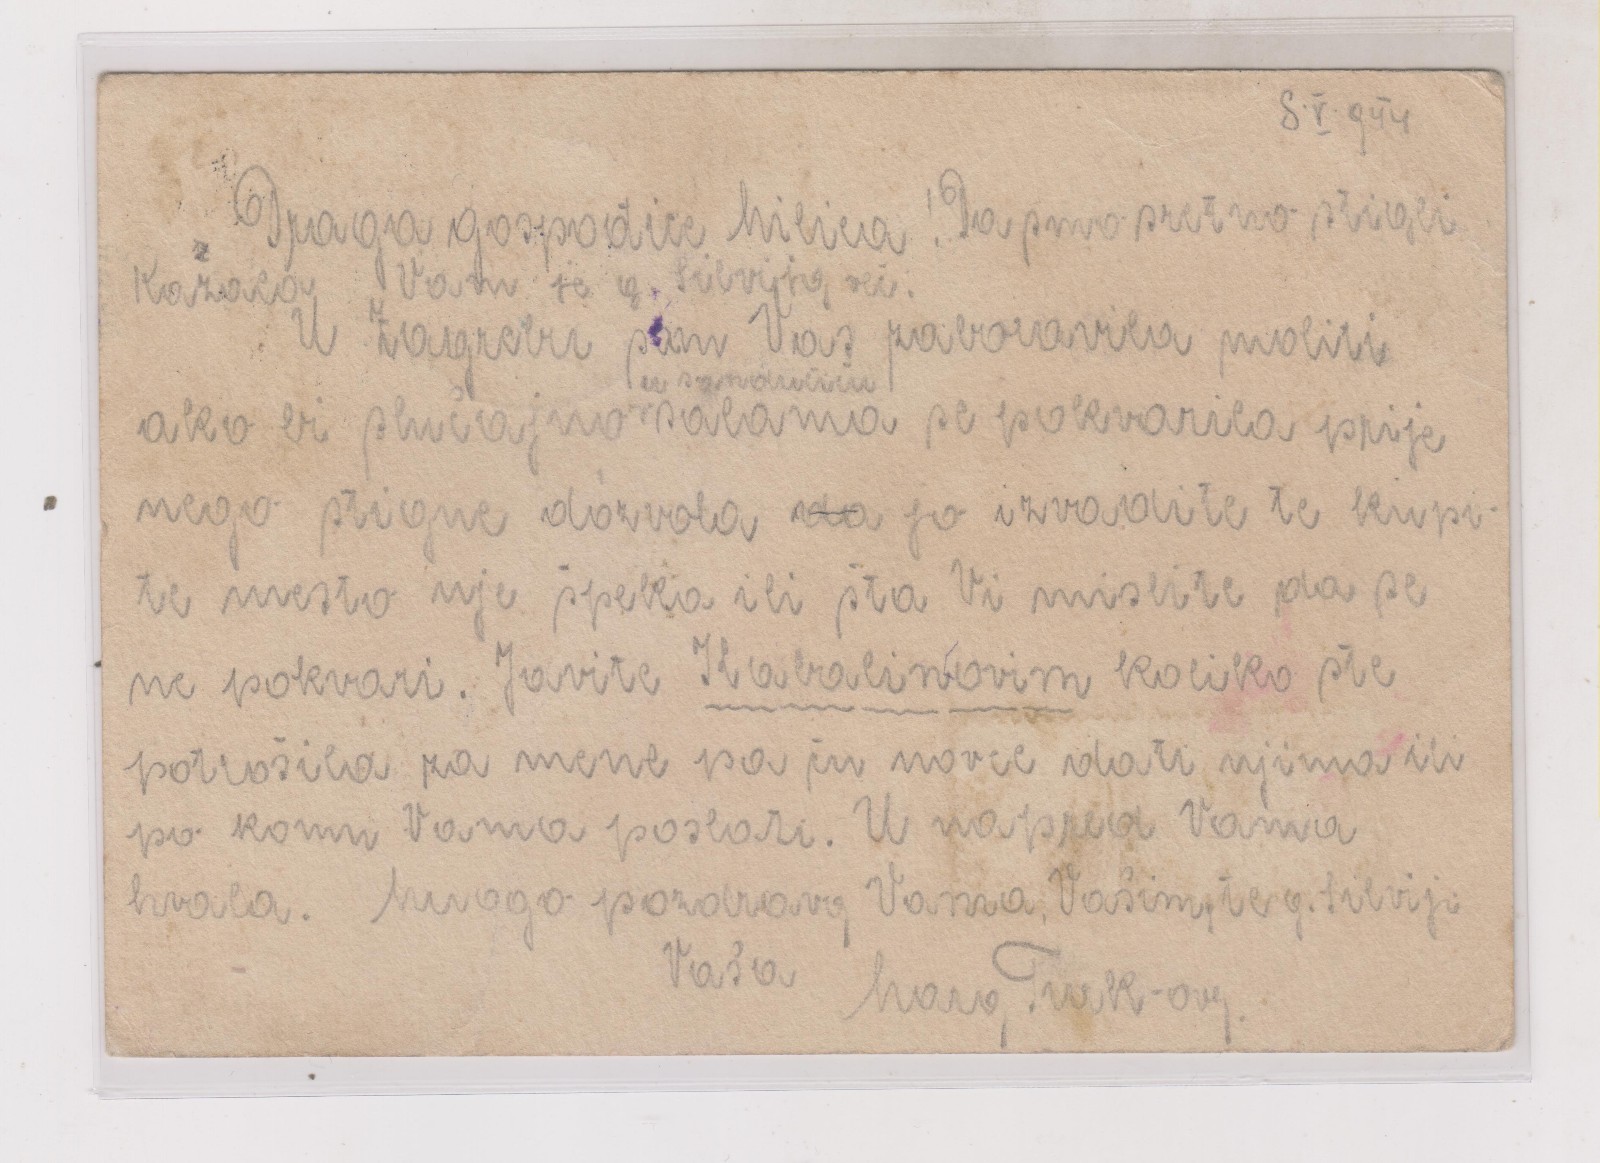 8.V.944
Draga gospođice Milica! Da smo sretno stigli
Kazala Vam je g. Silvija već.
U Zagrebu sam Vas zaboravila moliti
u sandučiću
ako bi slučajno salama se pokvarila prije
nego stigne dozvola da jo izvadite te kupi-
te mesto nje špeka ili šta Vi mislite da se
ne pokvari. Javite koliko ste
potrošila za mene pa ću novce dati njima ili
po komu Vama poslati. U napred Vama
hvala. Mnogo pozdrava Vama, Vašima, te g. Silviji
Vaša Turk-ovy.